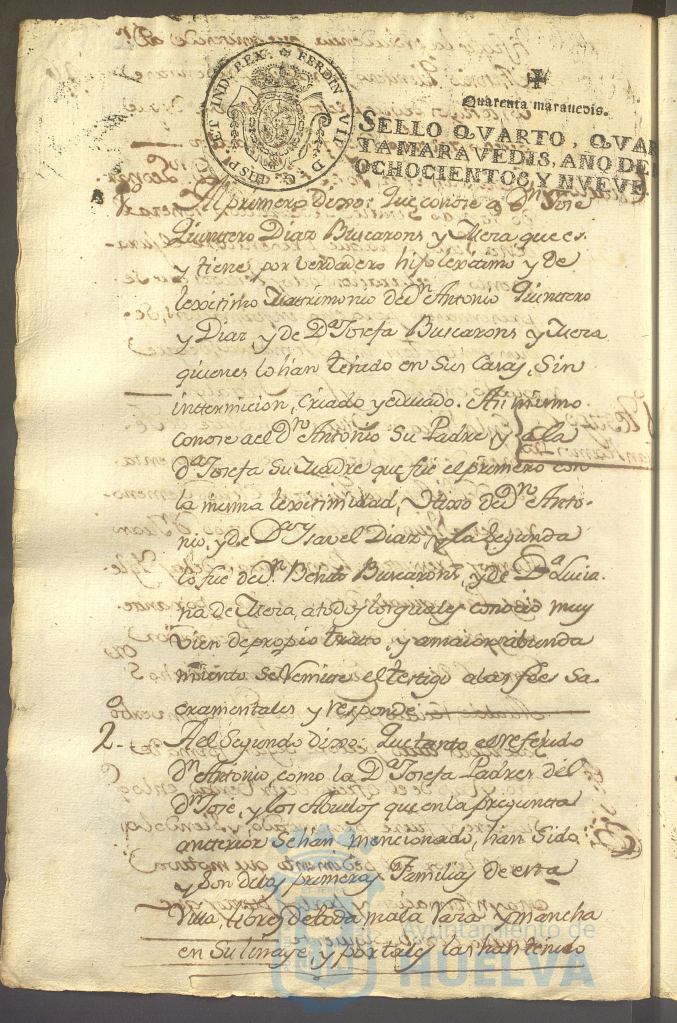 HISP. ET IND. REX. FERDIN. VII. D. G.
Quarenta maravedis.
SELLO QVARTO, QVAR
TAMARAVEDIS, AÑO DE
OCHOCIENTOS, Y NVEVE
Al primero dixo: Que conose a Dn. Jose
Quintero Diaz Buscarons y Mera que es
y tiene por verdadero hijo lexitimo y de
lexitimo Matrimonio de Dn. Antonio Quintero
y Diaz, y de Da. Josefa Buscarons y Mera
quienes lo han tenido en sus Casas, Sin
intermicion, Criado y educado. Asi mismo
conose a el Dn. Antonio Su Padre y a la
Da. Josefa Su Madre que fue el primero con
la misma lexitimidad, Hixo de Dn. Anto-
nio, y de Da. Isavel Diaz, y la Segunda
lo fue de Dn. Benito Buscarons, y de Da. Lucia
na de Mera, a todos los quales conocio muy
vien de propio tratto, y a maior abunda
miento Se remite el testigo a las fees Sa
cramentales y responde
2 - A el Segundo dixo: Que tanto el referido
Dn. Antonio, como la Da. Josefa Padres del
Dn. Jose, y los Abuelos que en la pregunta
anterior Se han mencionado, han Sido
y Son de las primeras Familias de esta
Villa, libres de toda mala raza y mancha
en Su linaje, y por tales las han tenido
Ayuntamiento de
HUELVA